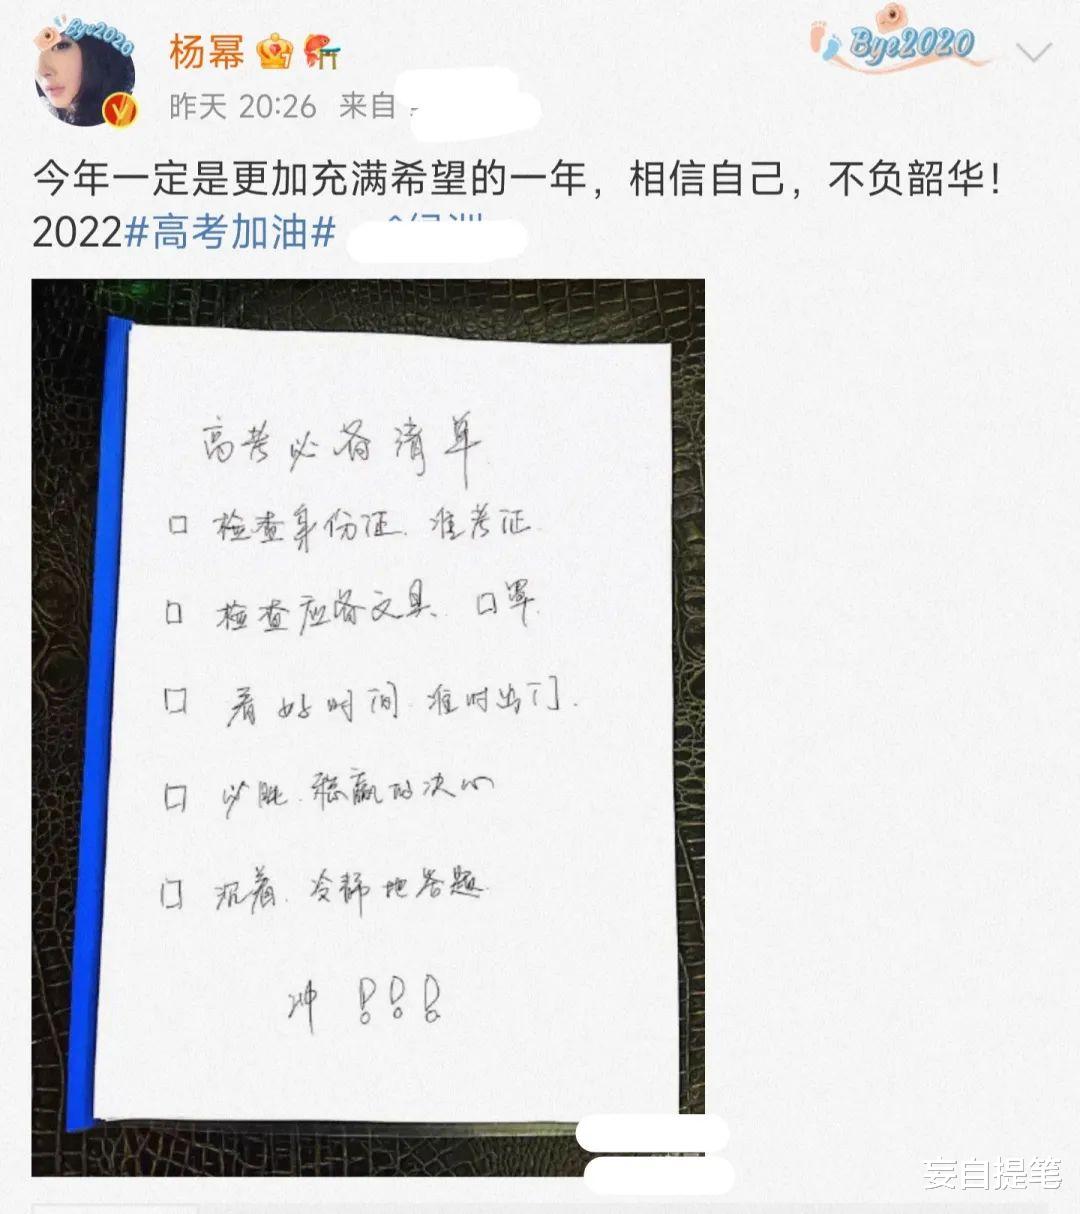 Bye2020
杨幂
Bye2020
昨天 20:26 来自
今年一定是更加充满希望的一年，相信自己，不负韶华！
2022#高考加油#
高考必备清单
口 检查身份证、准考证.
口 检查应备文具、口罩.
口 看好时间、准时出门.
口 必胜、稳赢的决心
口 沉着、冷静地答题.
冲 !!!
妄自提笔